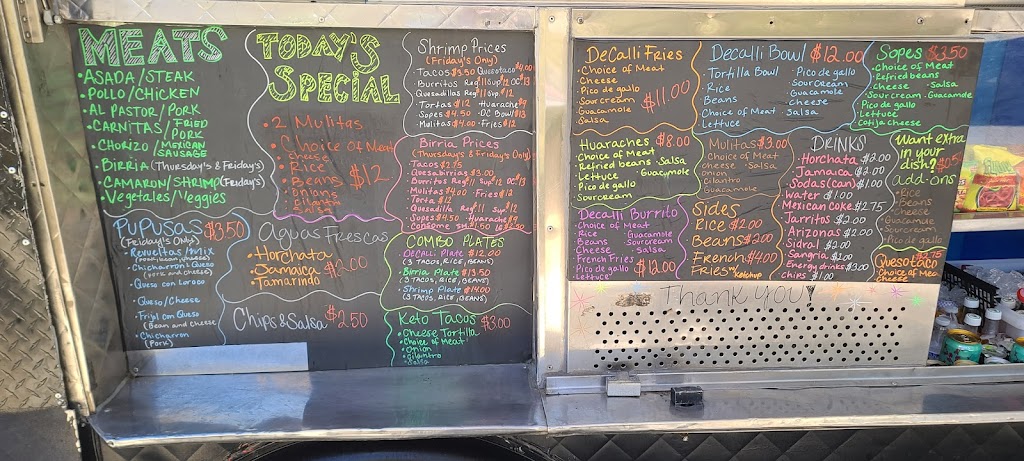 MEATS
• ASADA/STEAK
• POLLO/CHICKEN
• AL PASTOR/PORK
• CARNITAS/FRIED PORK
• CHORIZO/MEXICAN SAUSAGE
• BIRRIA (Thursday's & Friday's)
• CAMARON/SHRIMP (Friday's)
• Vegetales/Veggies
TODAY'S
SPECIAL
• 2 Mulitas
• Choice of Meat
Cheese
• Rice
• Beans
• Onion
• Cilantro
Salsa
$12
Shrimp Prices
(Friday's Only)
• Tacos $3.50 Quesotaco $4.00
• Burritos Reg $11 Sup. 12 DC $13
• Quesadillas Reg $11 Sup. $12
• Tortas $12 • Huarache $9
• Sopes $4.50 • DC Bowl $13
• Mulitas $4.00 • Fries $12
Birria Prices
(Thursday's & Friday's Only)
• Tacos $2.75
• Quesabirrias $3.00
• Burritos Reg $11 Sup $12 DC $13
• Mulitas $4.00 • Fries $12
• Torta $12
• Quesadilla Reg $11 Sup. $12
• Sopes $4.50 • Huarache $9
• Consome
PUPUSAS $3.50
(Friday's Only)
• Revueltas/Mix
(Pork, Bean, Cheese)
• Chicharron & Queso
(Pork and cheese)
• Queso con Loroco
• Queso/Cheese
• Frijol con Queso
(Bean and cheese)
• Chicharron
(Pork)
Aguas Frescas
• Horchata
• Jamaica
• Tamarindo
$3.00
Chips & Salsa $2.50
COMBO PLATES
• DECALLI PLATE $12.00
(3 TACOS, RICE, BEANS)
• Birria Plate $13.50
(3 TACOS, RICE, BEANS)
• Shrimp Plate $14.00
(3 TACOS, RICE, BEANS)
Keto Tacos $3.00
• Cheese Tortilla
• Choice of Meat
• Onion
• Cilantro
• Salsa
DeCalli Fries
• Choice of Meat
Cheese
• Pico de gallo
• Sour cream
• Guacamole
• Salsa
$11.00
DeCalli Bowl $12.00
• Tortilla Bowl • Pico de gallo
• Rice • Sour Cream
• Beans • Guacamole
• Cheese
• Choice of Meat • Salsa
• Lettuce
Sopes $3.50
Choice of Meat
Refried beans
• Cheese • Salsa
• Sour cream • Guacamole
Pico de gallo
• Lettuce
Cotija Cheese
Huaraches $8.00
• Choice of Meat
• Refried beans • Salsa
• Lettuce • Guacamole
• Pico de gallo
• Sourcream
Mulitas $3.00
• Choice of Meat
cheese • Salsa
onion
Cilantro
Guacamole
DRINKS
Horchata $2.00
Jamaica $2.00
Sodas (can) $1.00
Water $1.00
Mexican coke $2.75
Jarritos $2.00
Arizonas $2.00
Sidral $2.00
Sangria $2.00
Energy drinks $3.00
chips $1.00
Want extra
in your
dish? $0.50
add-ons
• Rice
• Beans
Cheese
Guacamole
Sourcream
Pico de gallo
Decalli Burrito
• Choice of Meat
• Rice • Guacamole
Beans • Sourcream
Cheese • Salsa
• French Fries
Pico de gallo
• Lettuce
$12.00
Sides
Rice $2.00
Beans $2.00
French $4.00
Fries w/ Ketchup
Quesotaco $2.75
Choice of Meat
Cheese
Thank You!